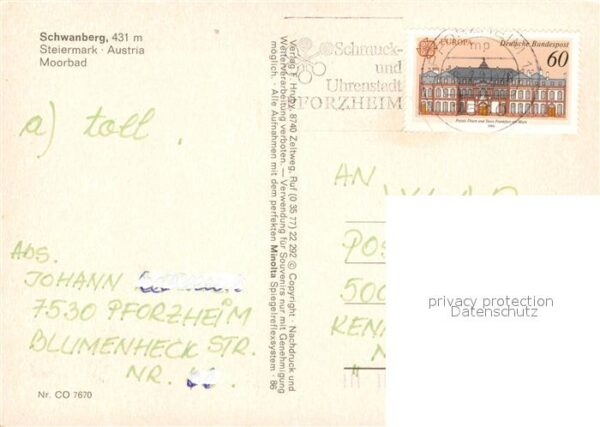 Schwanberg, 431 m
Steiermark · Austria
Moorbad
a) toll.
ADS.
JOHANN
7530 PFORZHEIM
BLUMENHECK STR.
NR.
Nr. CO 7670
Verlag F. Hruby, 8740 Zeltweg, Ruf (0 35 77) 22 292 © Copyright · Nachdruck und
Weiterverarbeitung verboten. — Verwendung für Souvenirs nur mit Genehmigung
möglich. · Alle Aufnahmen mit dem perfekten Minolta Spiegelreflexsystem · 86
Schmuck-
und
Uhrenstadt
PFORZHEIM
EUROPA
Deutsche Bundespost
60
Palais Thurn und Taxis Frankfurt am Main
AN
POS
500
KEN
privacy protection
Datenschutz